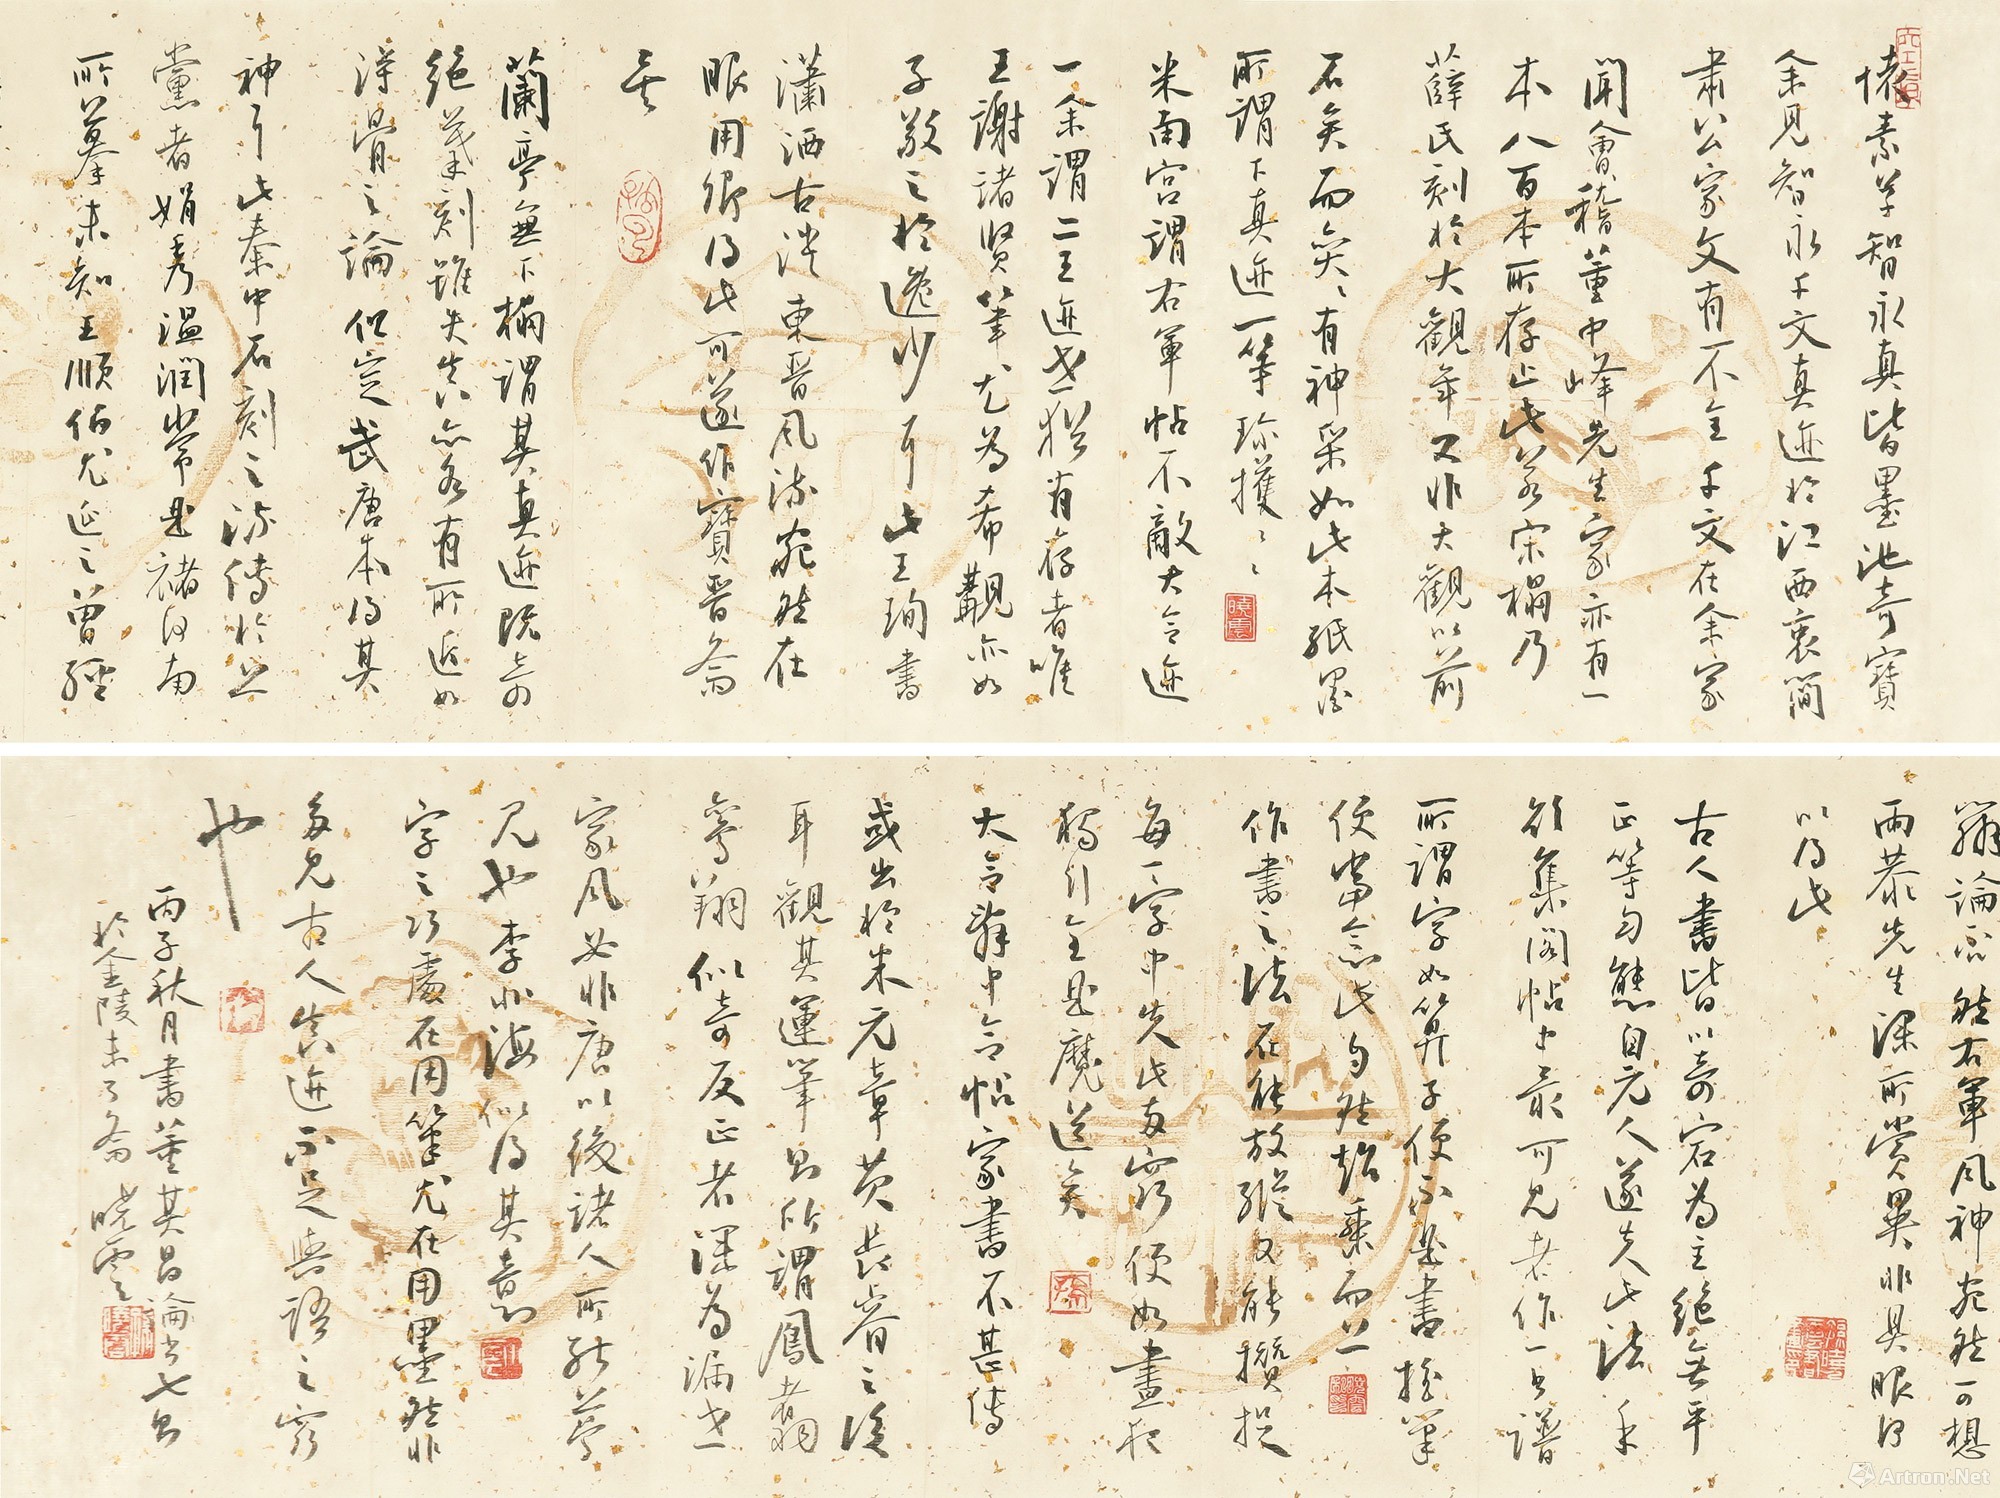 懷素草智永真皆墨池奇寶
余見智永千文真迹於江西袁簡
肅公家文有不全千文在余家
聞會稽董中峰先生家亦有一
本八百本所存止此若宋榻乃
薛氏刻於大觀年又非大觀以前
石矣而奕奕有神采如此本紙墨
所謂下真迹一等珍獲珍獲
米南宮謂右軍帖不敵大令迹
一余謂二王迹世猶有存者唯
王謝諸賢筆尤為希覯亦如
子敬之於逸少耳此王珣書
瀟洒古淡東晉風流宛然在
眼用卿得此可遂作寶晉齋
矣
蘭亭無下榻謂其真迹既奇
絕募刻雖失真亦各有所近如
得骨之論但定武唐本得其
神耳此秦中石刻之流傳於世
黨者娟秀溫潤當是褚河南
所摹未知王順伯尤延之曾經
辯論否然右軍風神宛然可想
雨恭先生深所賞異非具眼何
以得此
古人書皆以奇宕為主絕無平
正等勻態自元人遂失此法余
欲集閣帖中最可見者作一書譜
所謂字如算子便不是書握筆
便當念此勿然趨乘而上
作書之法在能放縱又能攢捉
每一字中失此兩竅便如晝夜
獨行全是魔道矣
大令辭中令帖家書不甚傳
或出於米元章黃長睿之後
耳觀其運筆則所謂鳳翥
鸞翔似奇反正者深為漏世
家風必非唐以後諸人所能夢
見也李北海似得其意
字之巧處在用筆尤在用墨然非
多見古人真迹不足與語之竅
也
丙子秋月書董其昌論書七則
於金陵未了齋曉雲
Artron.Net